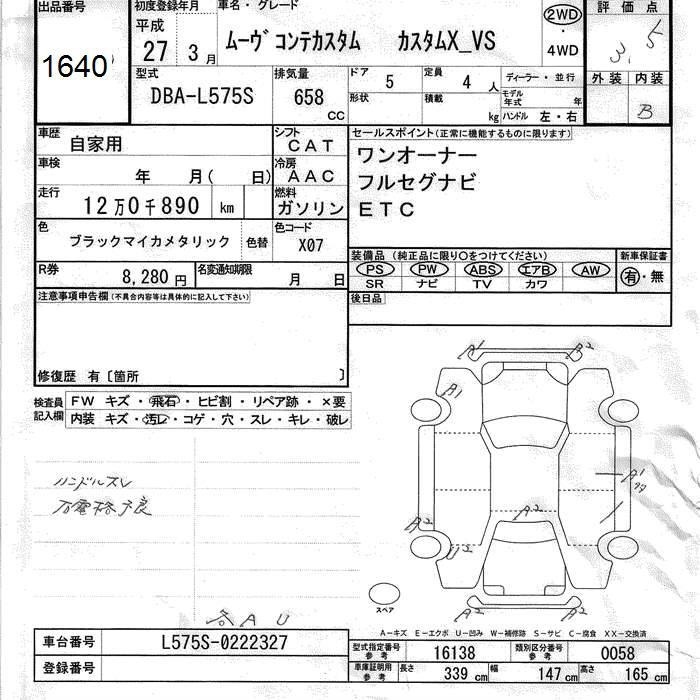 出品番号
1640
初度登録年月
平成
27 3月
車名・グレード
ムーヴ コンテカスタム カスタムX_VS
2WD
・
4WD
評価点
3.5
外装 内装
B
型式
DBA-L575S
排気量
658
CC
ドア
5
定員
4人
形状
積載
kg
ディーラー・並行
モデル年式 年
ハンドル 左・右
車歴
自家用
シフト
CAT
車検
年 月( 日)
冷房
AAC
走行
12万0千890 km
燃料
ガソリン
色
ブラックマイカメタリック
色替
色コード
X07
R券
8,280円
名変通知期限
月 日
セールスポイント(正常に機能するものに限ります)
ワンオーナー
フルセグナビ
ETC
装備品(純正品に限り○をつけてください)
新車保証書
PS PW ABS エアB AW
有・無
SR ナビ TV カワ
後日品
注意事項申告欄(不具合内容等は具体的に記入して下さい)
修復歴 有〔箇所 〕
検査員記入欄
FW キズ・飛石・ヒビ割・リペア跡・×要
内装 キズ・汚レ・コゲ・穴・スレ・キレ・破レ
ハンドルスレ
各AU
A1 A2
A1
A1
A2
A2
U2
A2 A2
スペア
A-キズ E-エクボ U-凹み W-補修跡 S-サビ C-腐食 XX-交換済
車台番号
L575S-0222327
登録番号
型式指定番号
参考
16138
類別区分番号
参考
0058
車庫証明用
参考
長さ
339 cm
幅
147 cm
高さ
165 cm